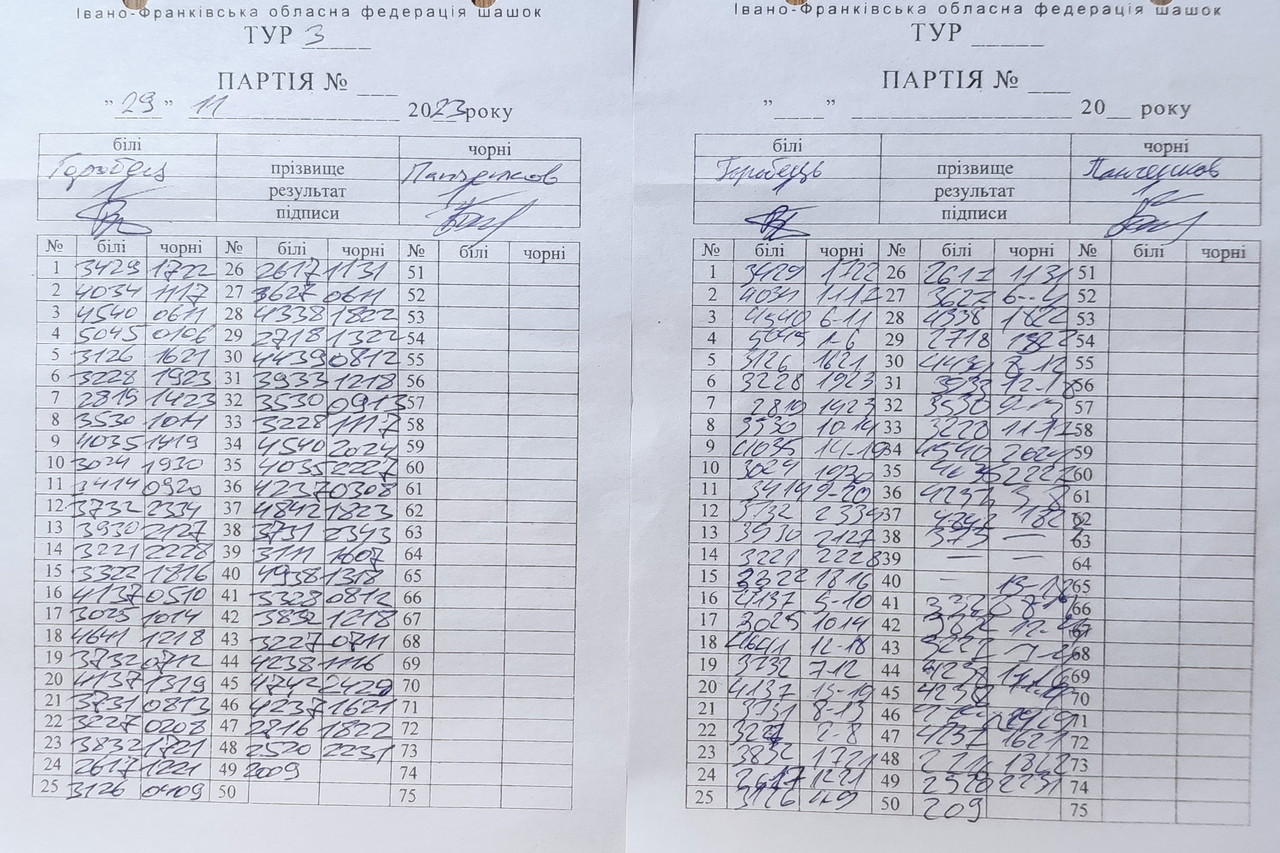 Івано-Франківська обласна федерація шашок
ТУР 3
ПАРТІЯ №
" 29 " 11 2023 року
білі чорні
Горобець прізвище Панченков
результат
підписи
№ білі чорні № білі чорні № білі чорні
1 3429 1722 26 2617 1131 51
2 4034 1117 27 3627 0611 52
3 4540 0611 28 4338 1822 53
4 5045 0106 29 2718 1322 54
5 3126 1621 30 4439 0812 55
6 3228 1923 31 3933 1218 56
7 2819 1423 32 3530 0913 57
8 3530 1011 33 3228 1117 58
9 4035 1419 34 4540 2024 59
10 3024 1930 35 4035 2227 60
11 3414 0920 36 4237 0308 61
12 3732 2334 37 4842 1823 62
13 3930 2127 38 3731 2343 63
14 3221 2228 39 3111 1607 64
15 3322 1816 40 4938 1318 65
16 4137 0510 41 3328 0812 66
17 3025 1014 42 3832 1218 67
18 4641 1218 43 3227 0711 68
19 3732 0712 44 4238 1116 69
20 4137 1319 45 4742 2429 70
21 3731 0813 46 4237 1621 71
22 3227 0208 47 2816 1822 72
23 3832 1721 48 2520 2231 73
24 2617 1221 49 2009 74
25 3126 0409 50 75
Івано-Франківська обласна федерація шашок
ТУР
ПАРТІЯ №
" " 20 року
білі чорні
Горобець прізвище Панченков
результат
підписи
№ білі чорні № білі чорні № білі чорні
1 3429 1722 26 2617 1131 51
2 4034 1117 27 3627 52
3 4540 6-11 28 4338 1822 53
4 5045 1-6 29 2718 1322 54
5 3126 1621 30 4439 8-12 55
6 3228 1923 31 3933 12-18 56
7 2819 1423 32 3530 9-13 57
8 3530 10-14 33 3228 1117 58
9 4035 14-19 34 4540 2024 59
10 3024 1930 35 4035 2227 60
11 3414 9-20 36 4237 3-8 61
12 3732 2334 37 4842 62
13 3930 2127 38 373 — 63
14 3221 2228 39 — — 64
15 3322 1816 40 — 13-18 65
16 4137 5-10 41 66
17 3025 1014 42 67
18 4641 12-18 43 68
19 3732 7-12 44 4238 69
20 4137 13-19 45 4238 70
21 3731 8-13 46 71
22 3227 2-8 47 4237 1621 72
23 3832 1721 48 73
24 2617 1221 49 2520 2231 74
25 3126 49 50 209 75